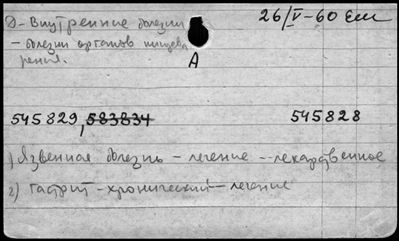 Д - Внутренние болезни 26/V-60 Еш
- болезни органов пищева
рения.
А
545829, 583834 545828
1) Язвенная болезнь - лечение - лекарственное
2) Гастрит - хронический - лечение